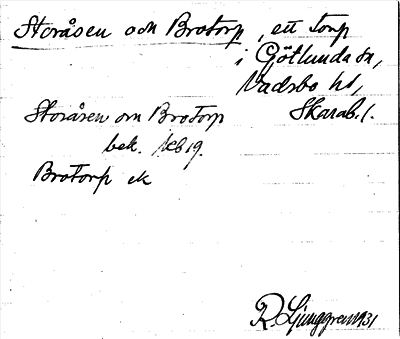 Storåsen och Brotorp, ett torp
i Götlunda sn,
Vadsbo hd,
Skarab. l.
Storåsen om Brotorp
bek. 1819.
Brotorp ek
R. Ljunggren 1931